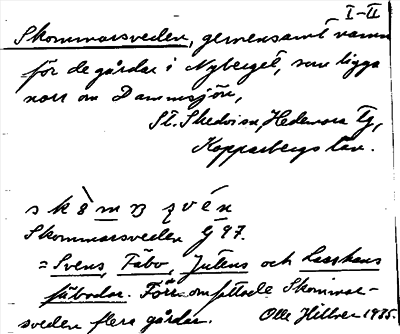 I-II
Skommarsveden, gemensamt namn
för de gårdar i Nyberget, som ligga
norr om Dammsjön,
St. Skedvi sn, Hedemora Tg,
Kopparbergs län.
Skommarsveden G 97.
= Svens, Täbo, Jutens och Lasshans
fäbodar. Förr omfattade Skommar-
sveden flera gårdar. Olle Hillver 1935.